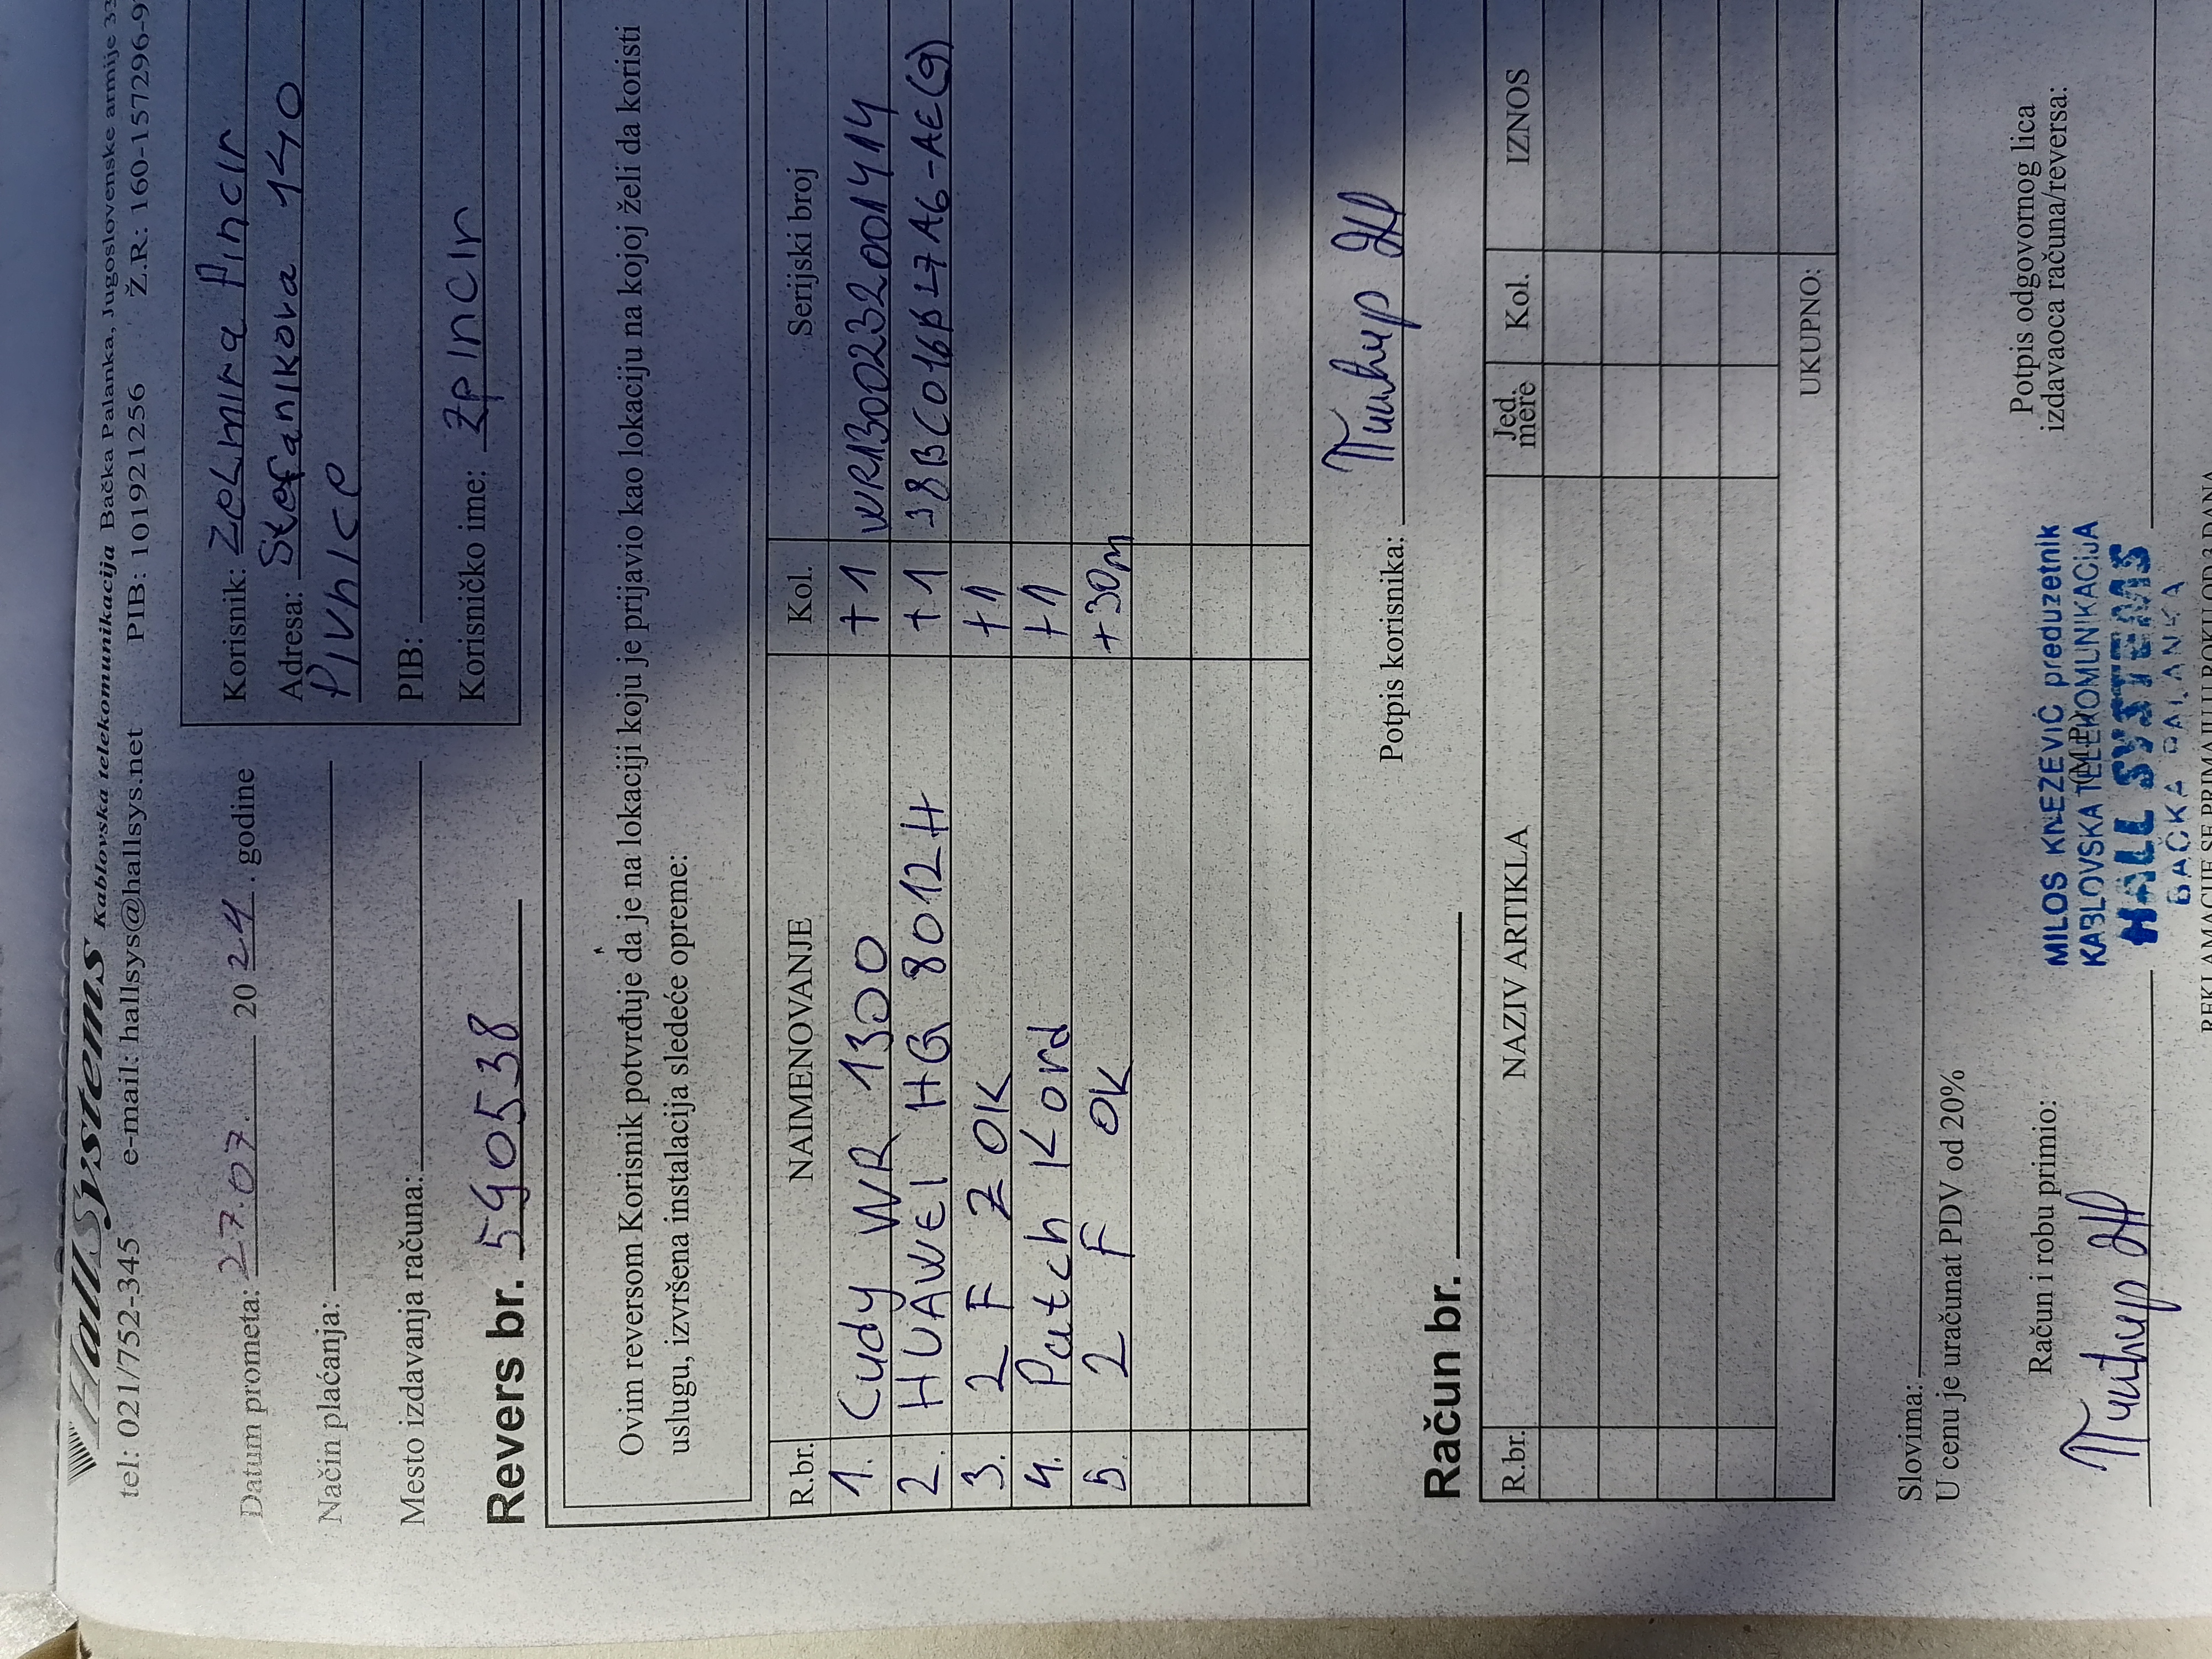 HallSystems Kablovska telekomunikacija Bačka Palanka, Jugoslovenske armije
tel: 021/752-345 e-mail: hallsys@hallsys.net PIB: 101921256 Ž.R: 160-157296-9
Datum prometa: 27.07. 2024. godine
Način plaćanja:
Mesto izdavanja računa:
Korisnik: Zelmira Pincir
Adresa: Stefanikova 140
Pivnice
PIB:
Korisničko ime: zpincir
Revers br. 590538
Ovim reversom Korisnik potvrđuje da je na lokaciji koju je prijavio kao lokaciju na kojoj želi da koristi
uslugu, izvršena instalacija sledeće opreme:
R.br. NAIMENOVANJE Kol. Serijski broj
1. Cudy WR 1300 +1 WR1300232001414
2. HUAWEI HG 8012H +1
3. 2 F ZOK +1
4. Patch Kord +1
5. 2 F OK +30m
Potpis korisnika: Пинћир
Račun br.
R.br. NAZIV ARTIKLA Jed. mere Kol. IZNOS
UKUPNO:
Slovima:
U cenu je uračunat PDV od 20%
Račun i robu primio:
Potpis odgovornog lica
izdavaoca računa/reversa:
Пинћир
MILOS KNEZEVIĆ preduzetnik
KABLOVSKA TELEKOMUNIKACIJA
HALL SYSTEMS
BAČKA PALANKA
REKLAMACIJE SE PRIMAJU U ROKU OD 3 DANA